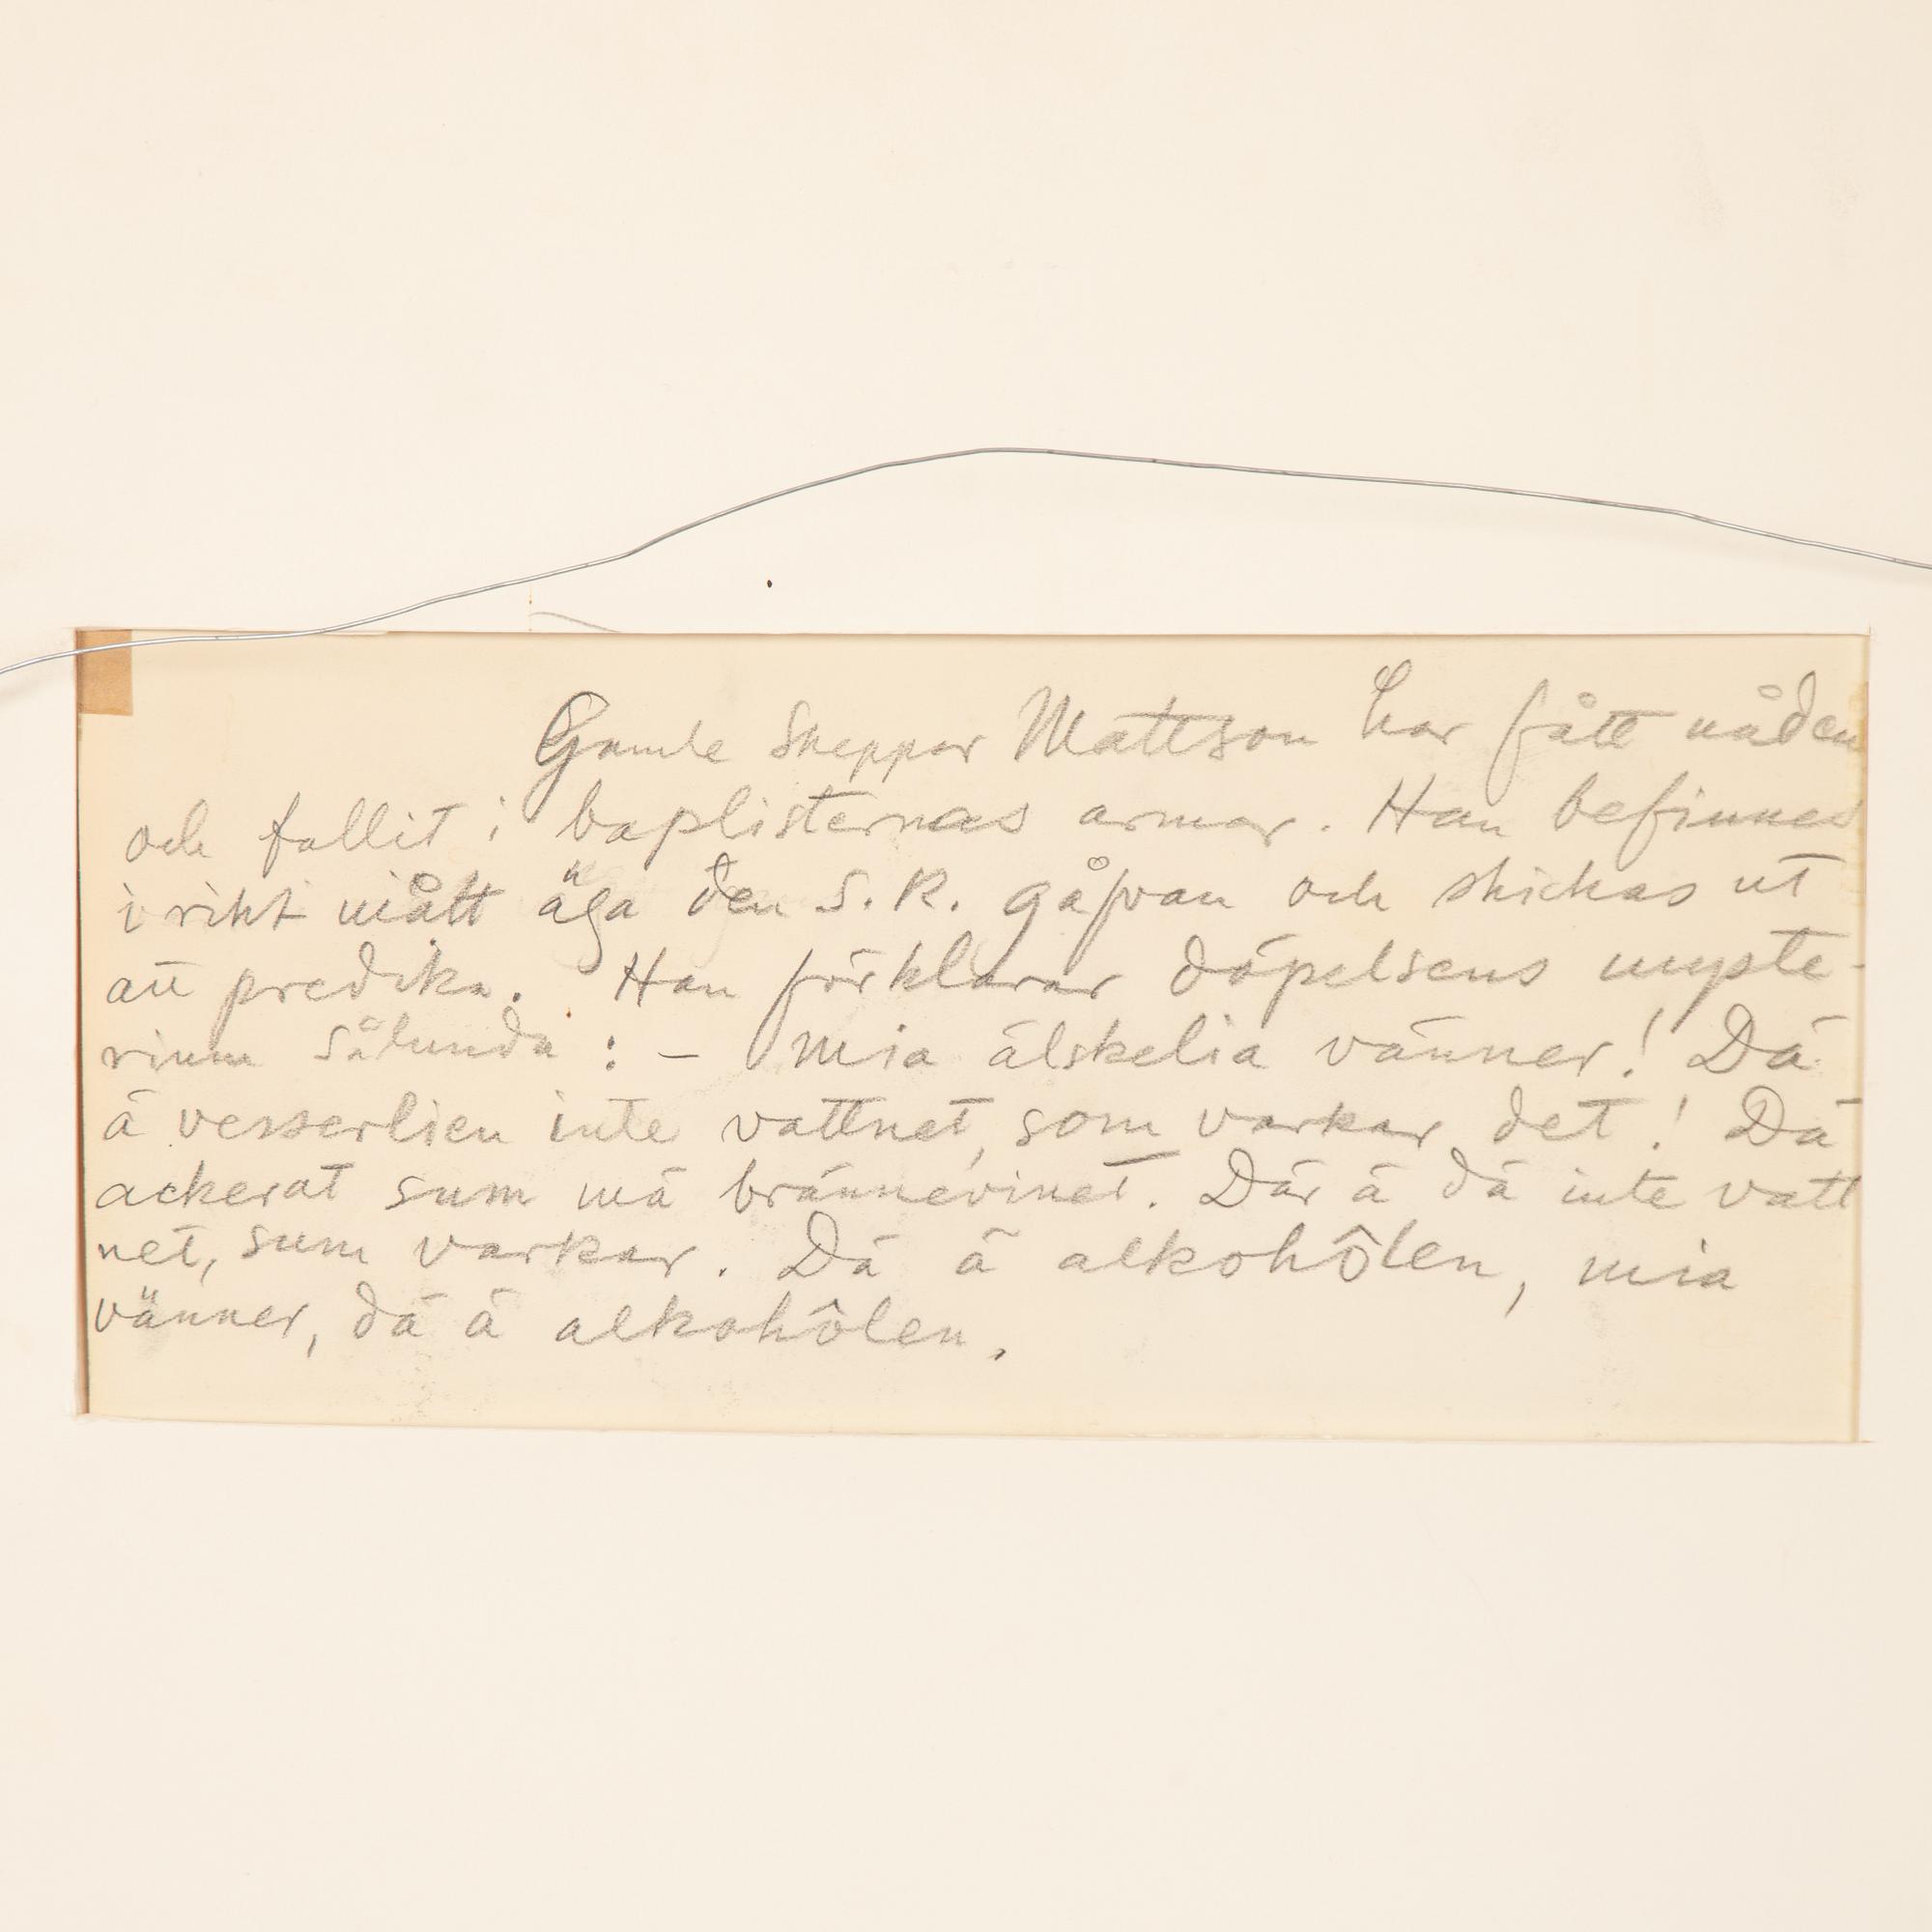 Gamle Skeppar Mattson har fått nåden
och fallit i baptisternas armar. Han befinnes
i rikt mått äga den s.k. gåfvan och skickas ut
att predika. Han förklarar döpelsens myste-
rium sålunda : – Mia älskelia vänner! Dä
ä vesserlien inte vattnet, som varkar det! Dä
ackerat sum mä brännevinet. Där ä dä inte vatt
net, sum varkar. Dä ä alkohôlen, mia
vänner, dä ä alkohôlen.